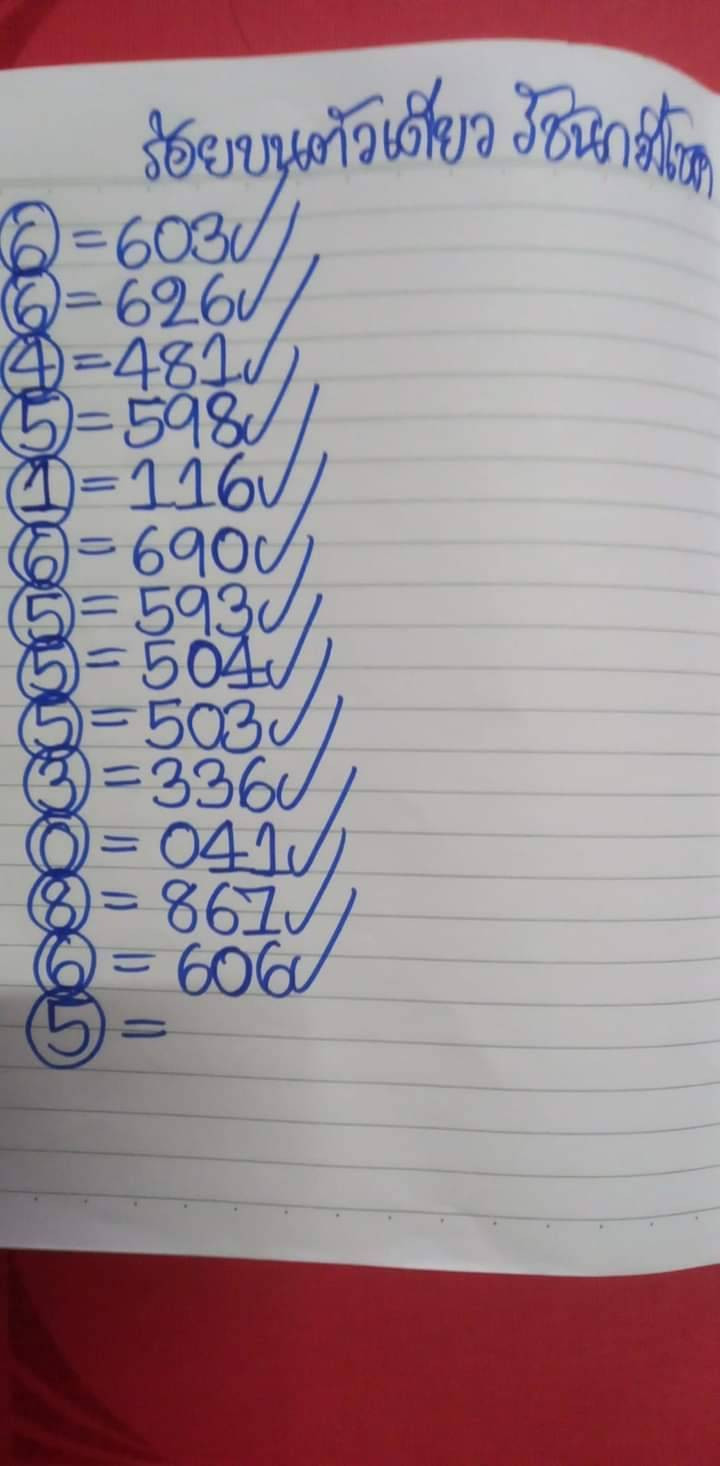 ร้อยบนตัวเดียว รัชนก มีโชค
6 = 603
6 = 626
4 = 481
5 = 598
1 = 116
6 = 690
5 = 593
5 = 504
5 = 503
3 = 336
0 = 041
8 = 867
6 = 606
5 =